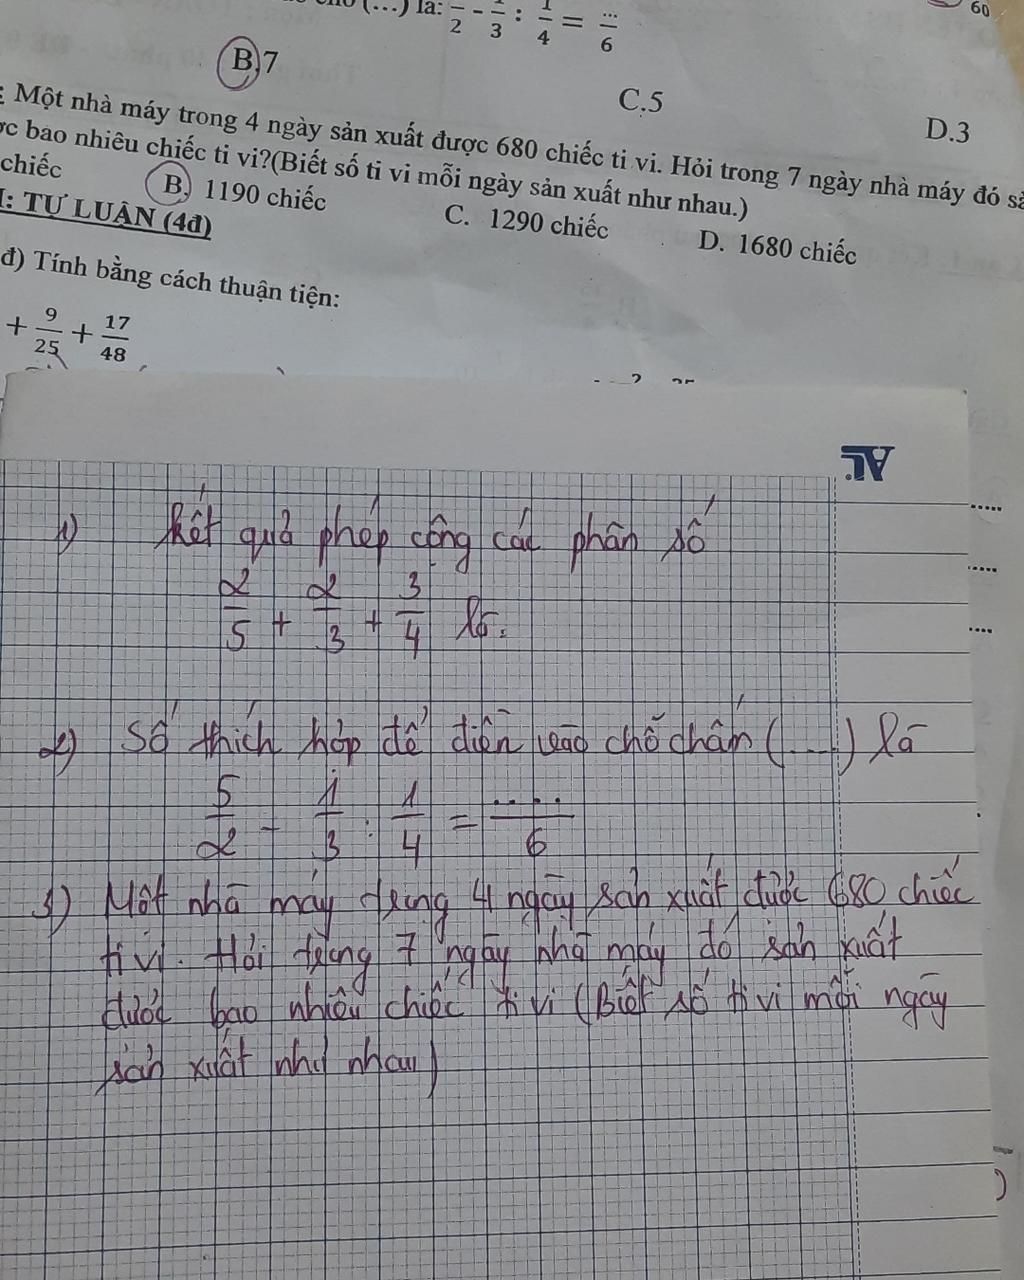 (...) là: 5/2 - 1/3 : 1/4 = .../6
60
B. 7
C.5
D.3
: Một nhà máy trong 4 ngày sản xuất được 680 chiếc ti vi. Hỏi trong 7 ngày nhà máy đó
bao nhiêu chiếc ti vi?(Biết số ti vi mỗi ngày sản xuất như nhau.)
chiếc
B. 1190 chiếc
C. 1290 chiếc
D. 1680 chiếc
I: TỰ LUẬN (4đ)
đ) Tính bằng cách thuận tiện:
+ 9/25 + 17/48
1) Kết quả phép cộng các phân số
2/5 + 2/3 + 3/4 là:
2) Số thích hợp để điền vào chỗ chấm (....) là
5/2 - 1/3 : 1/4 = ...../6
3) Một nhà máy trong 4 ngày sản xuất được 680 chiếc
ti vi. Hỏi trong 7 ngày nhà máy đó sản xuất
được bao nhiêu chiếc ti vi (Biết số ti vi mỗi ngày
sản xuất như nhau)